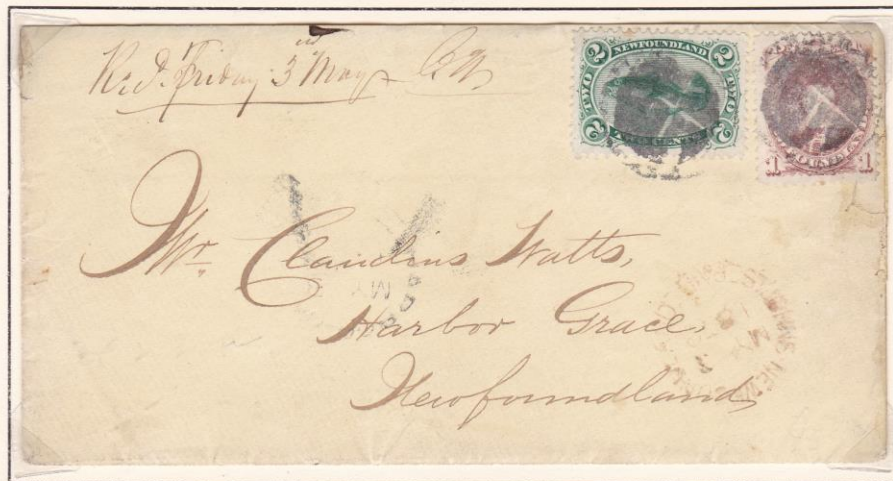 Rc'd. Friday 3rd May
2 NEWFOUNDLAND 2
TWO TWO
2 TWO CENTS 2
1 1
Mr. Claudius Watts,
Harbor Grace,
Newfoundland
ST. JOHN'S NEW
MY